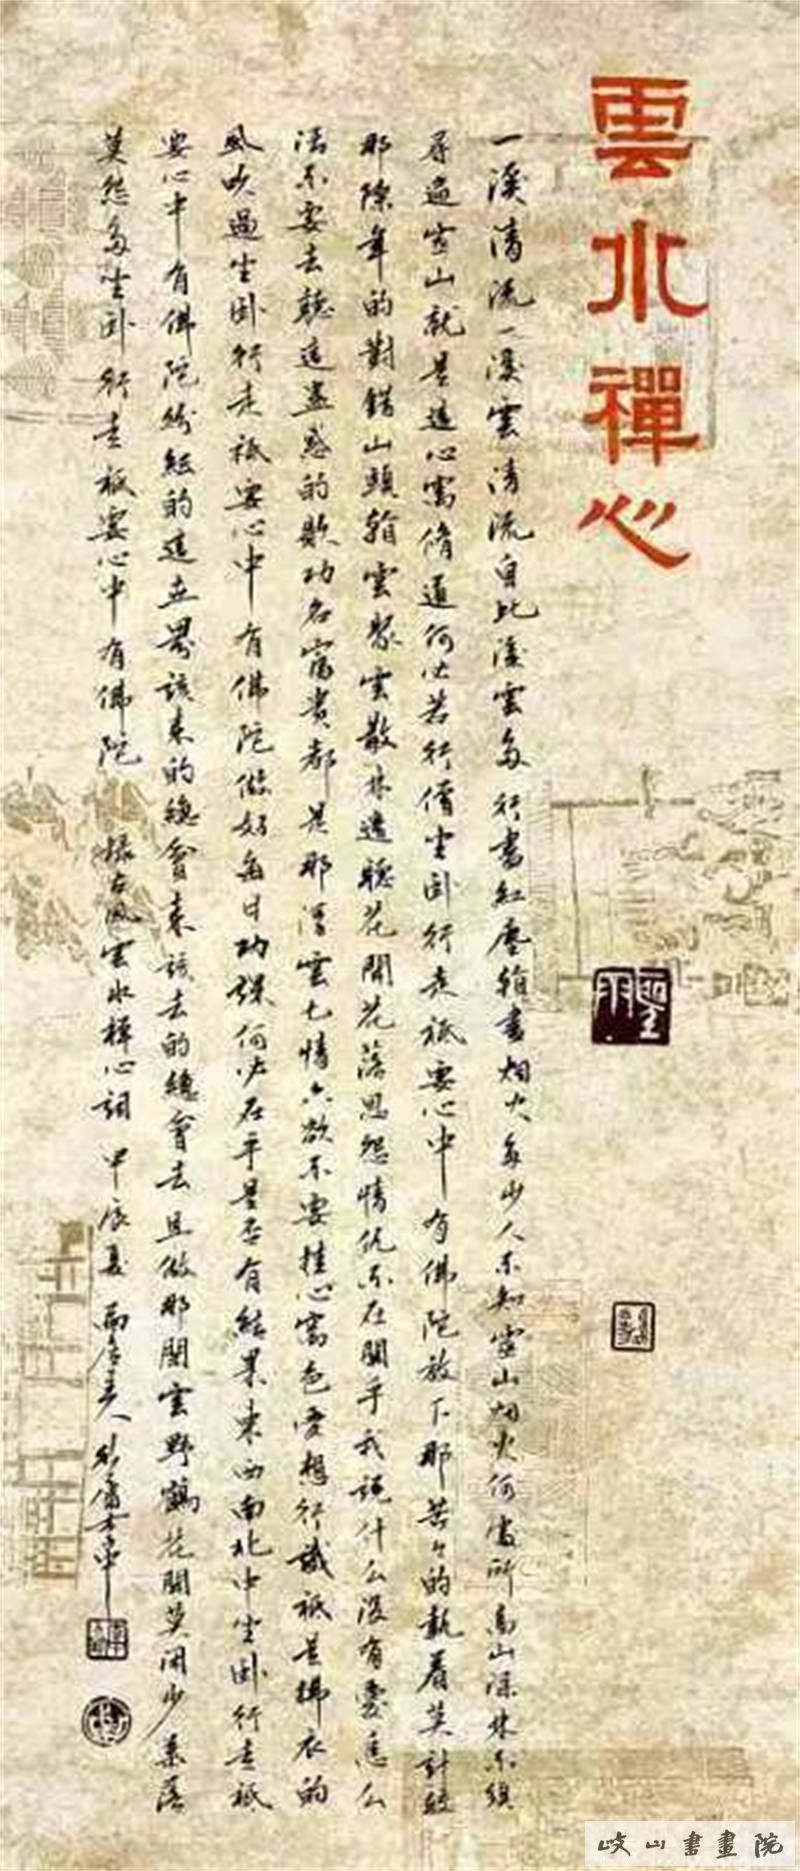 雲水禪心
一溪清流一溪雲清流自比溪雲多行書紅塵翰書烟火多少人不知靈山烟火何處所高山深林不須
尋遍靈山就是這心窩修道何必苦行僧坐卧行走祇要心中有佛陀放下那苦々的執着莫計較
那陳年的對錯山頭翰雲聚雲散林邊聽花開花落恩怨情仇不在關乎我說什么没有憂怎么
活不要去聽這蠱惑的歌功名富貴都是那浮雲七情六欲不要挂心窩色受想行識祇是拂衣的
風吹過坐卧行走祇要心中有佛陀做好每日功課何必在乎是否有結果東西南北中坐卧行走祇
要心中有佛陀紛紜的這世界該來的總會來該去的總會去且做那閑雲野鶴花開莫問少葉落
莫怨多坐卧行走祇要心中有佛陀 雲水禪心詞 甲辰夏
岐山書畫院